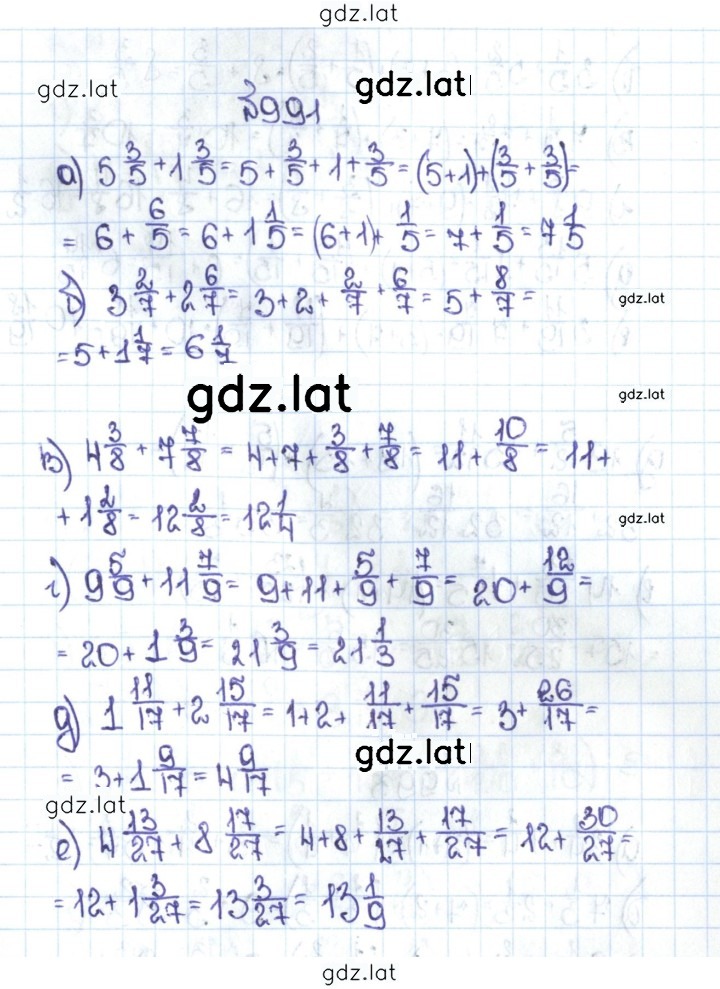 gdz.lat
gdz.lat gdz.lat
№991
а) 5 3/5 + 1 3/5 = 5 + 3/5 + 1 + 3/5 = (5+1)+(3/5 + 3/5)=
= 6 + 6/5 = 6 + 1 1/5 = (6+1)+ 1/5 = 7 + 1/5 = 7 1/5
б) 3 2/7 + 2 6/7 = 3+2+ 2/7 + 6/7 = 5 + 8/7 =
gdz.lat
= 5 + 1 1/7 = 6 1/7
gdz.lat gdz.lat
в) 4 3/8 + 7 7/8 = 4+7+ 3/8 + 7/8 = 11+ 10/8 = 11+
+ 1 2/8 = 12 2/8 = 12 1/4
gdz.lat
г) 9 5/9 + 11 7/9 = 9+11+ 5/9 + 7/9 = 20+ 12/9 =
= 20+ 1 3/9 = 21 3/9 = 21 1/3
д) 1 11/17 + 2 15/17 = 1+2+ 11/17 + 15/17 = 3+ 26/17 =
= 3+1 9/17 = 4 9/17
gdz.lat
gdz.lat
е) 4 13/27 + 8 17/27 = 4+8+ 13/27 + 17/27 = 12+ 30/27 =
= 12+ 1 3/27 = 13 3/27 = 13 1/9
gdz.lat